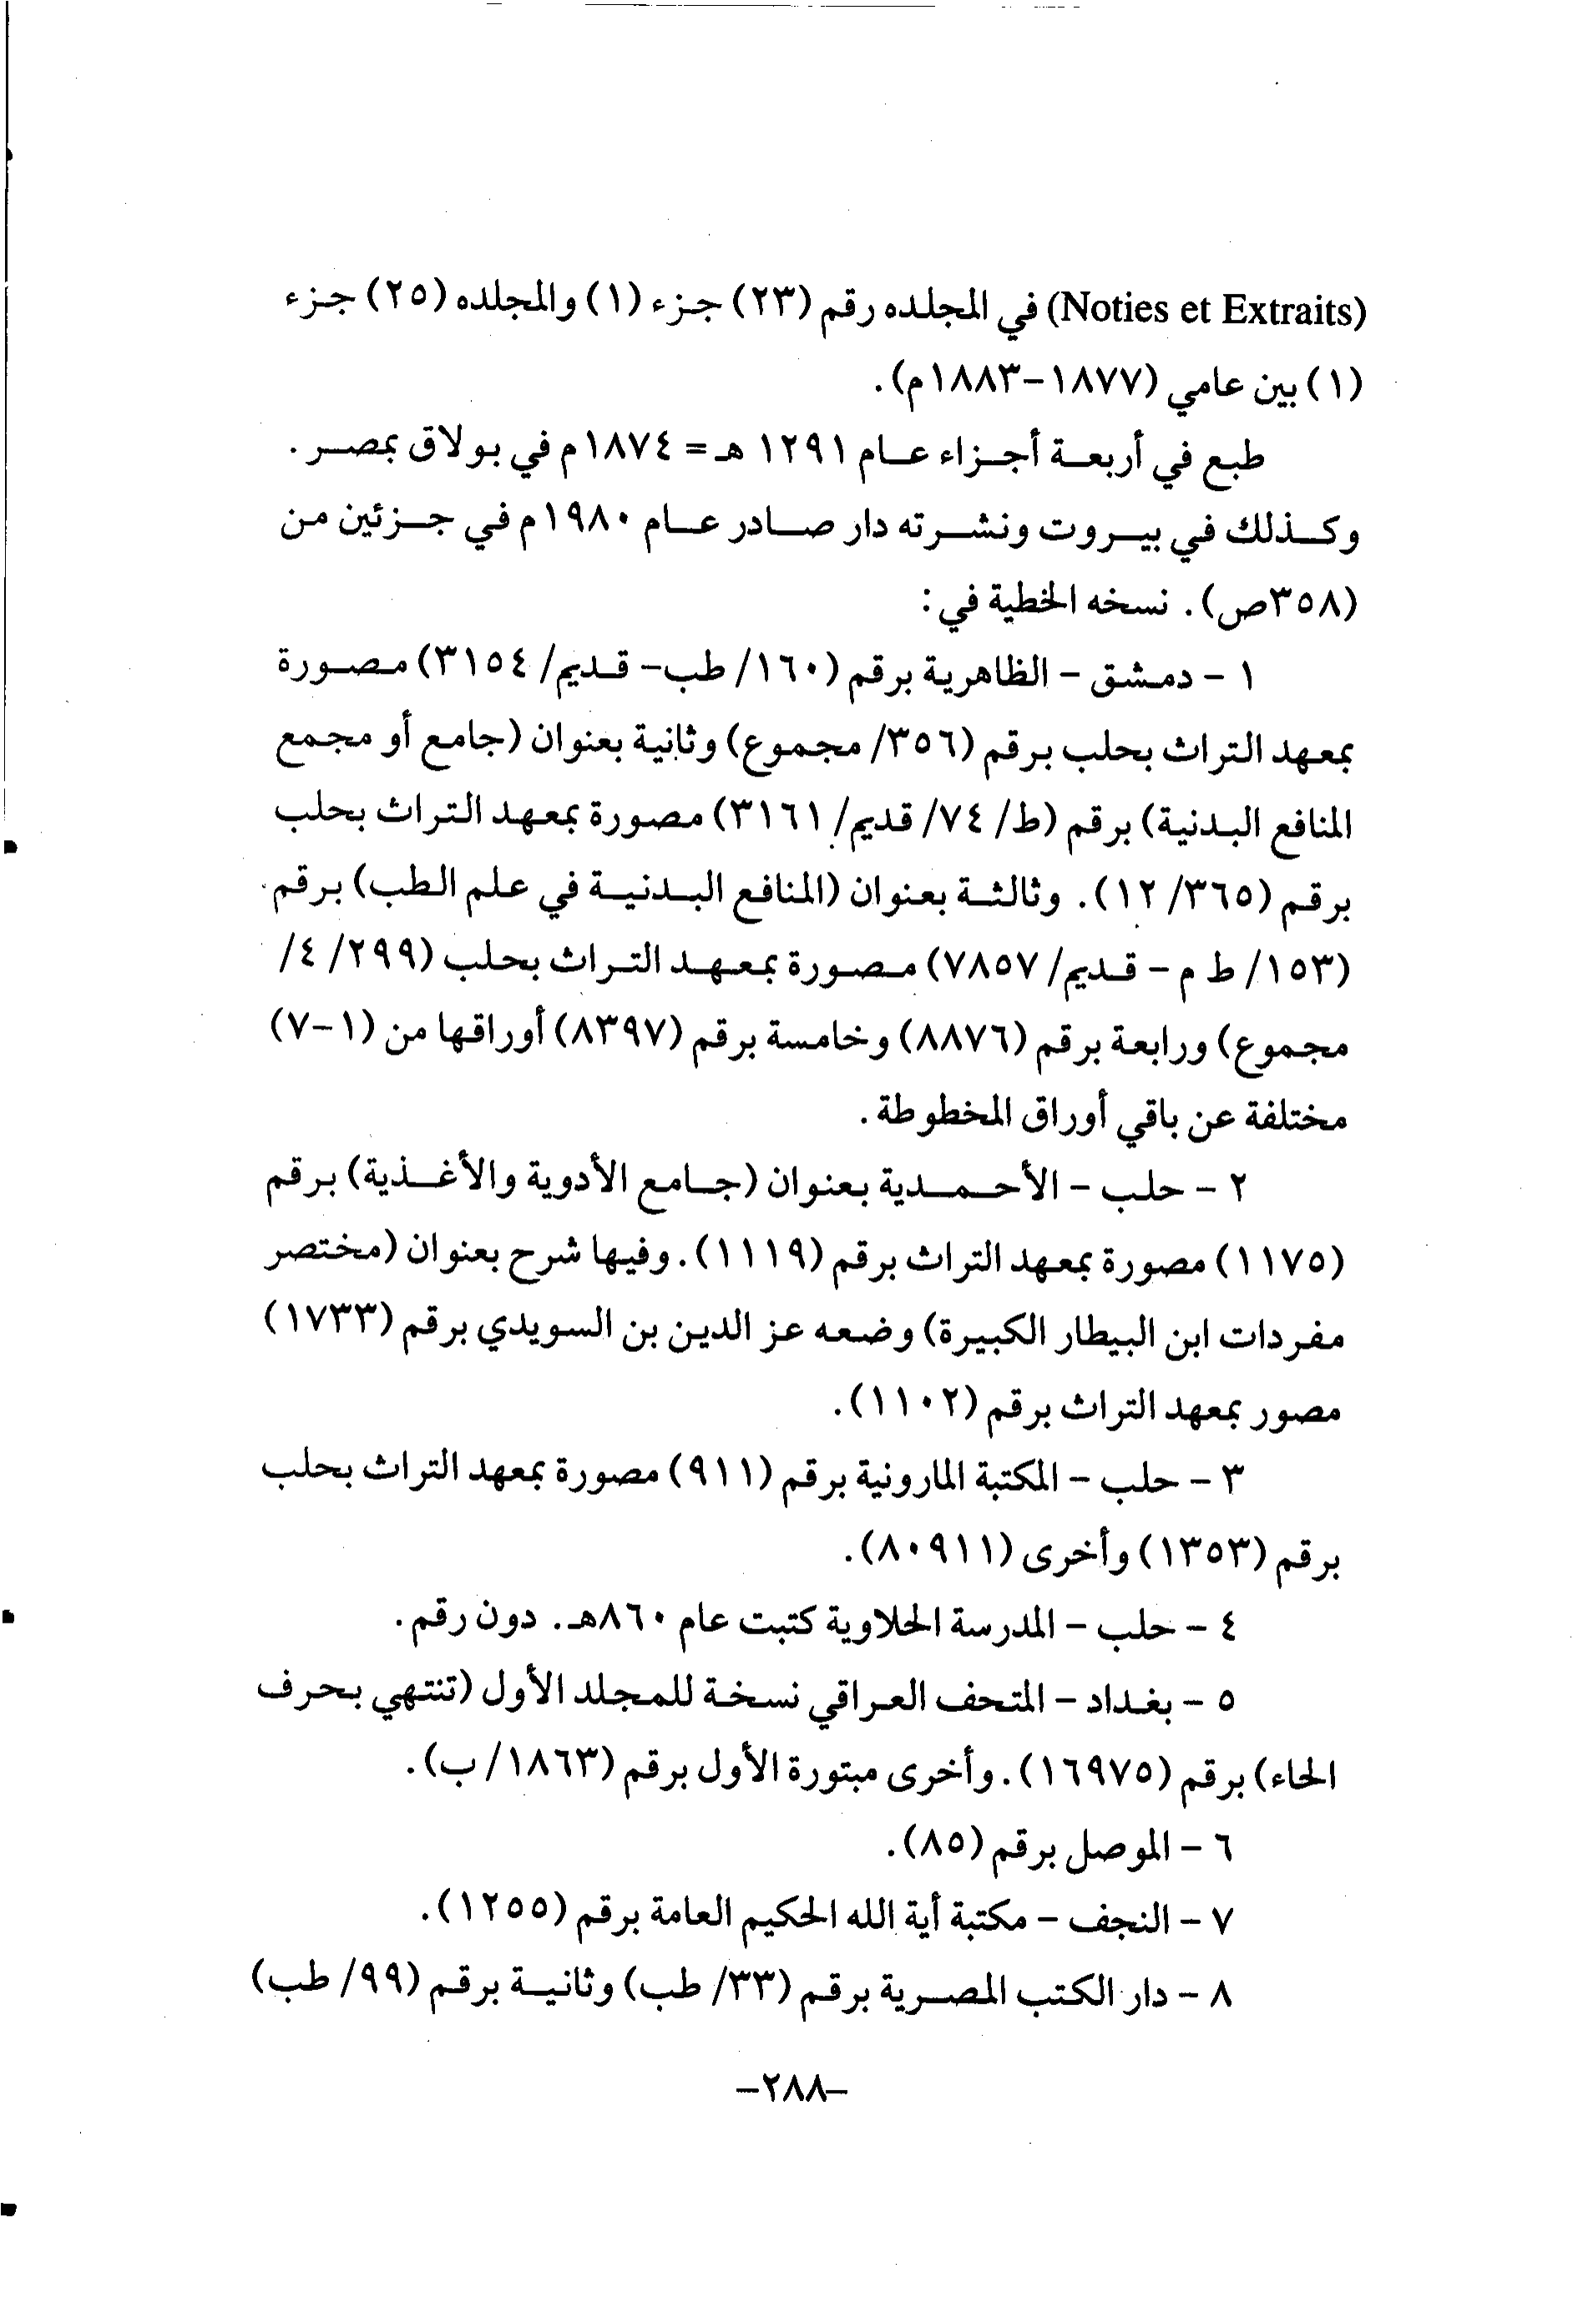 (Noties et Extraits) في المجلده رقم (٢٣) جزء (١) والمجلده (٢٥) جزء
(١) بين عامي (١٨٧٧-١٨٨٣م).
طبع في أربعة أجزاء عام ١٢٩١ هـ = ١٨٧٤م في بولاق بمصر.
وكذلك في بيروت ونشرته دار صادر عام ١٩٨٠م في جزئين من
(٣٥٨ص). نسخه الخطية في:
١ - دمشق - الظاهرية برقم (١٦٠/ طب- قديم/ ٣١٥٤) مصورة
بمعهد التراث بحلب برقم (٣٥٦/ مجموع) وثانية بعنوان (جامع أو مجمع
المنافع البدنية) برقم (ط/ ٧٤/ قديم/ ٣١٦١) مصورة بمعهد التراث بحلب
برقم (٣٦٥/ ١٢). وثالثة بعنوان (المنافع البدنية في علم الطب) برقم
(١٥٣/ ط م - قديم/ ٧٨٥٧) مصورة بمعهد التراث بحلب (٢٩٩/ ٤/
مجموع) ورابعة برقم (٨٨٧٦) وخامسة برقم (٨٣٩٧) أوراقها من (١-٧)
مختلفة عن باقي أوراق المخطوطة.
٢ - حلب - الأحمدية بعنوان (جامع الأدوية والأغذية) برقم
(١١٧٥) مصورة بمعهد التراث برقم (١١١٩). وفيها شرح بعنوان (مختصر
مفردات ابن البيطار الكبيرة) وضعه عز الدين بن السويدي برقم (١٧٣٣)
مصور بمعهد التراث برقم (١١٠٢).
٣ - حلب - المكتبة المارونية برقم (٩١١) مصورة بمعهد التراث بحلب
برقم (١٣٥٣) وأخرى (٨٠٩١١).
٤ - حلب - المدرسة الحلاوية كتبت عام ٨٦٠هـ. دون رقم.
٥ - بغداد - المتحف العراقي نسخة للمجلد الأول (تنتهي بحرف
الحاء) برقم (١٦٩٧٥). وأخرى مبتورة الأول برقم (١٨٦٣/ ب).
٦ - الموصل برقم (٨٥).
٧ - النجف - مكتبة أية الله الحكيم العامة برقم (١٢٥٥).
٨ - دار الكتب المصرية برقم (٣٣/ طب) وثانية برقم (٩٩/ طب)
-٢٨٨-